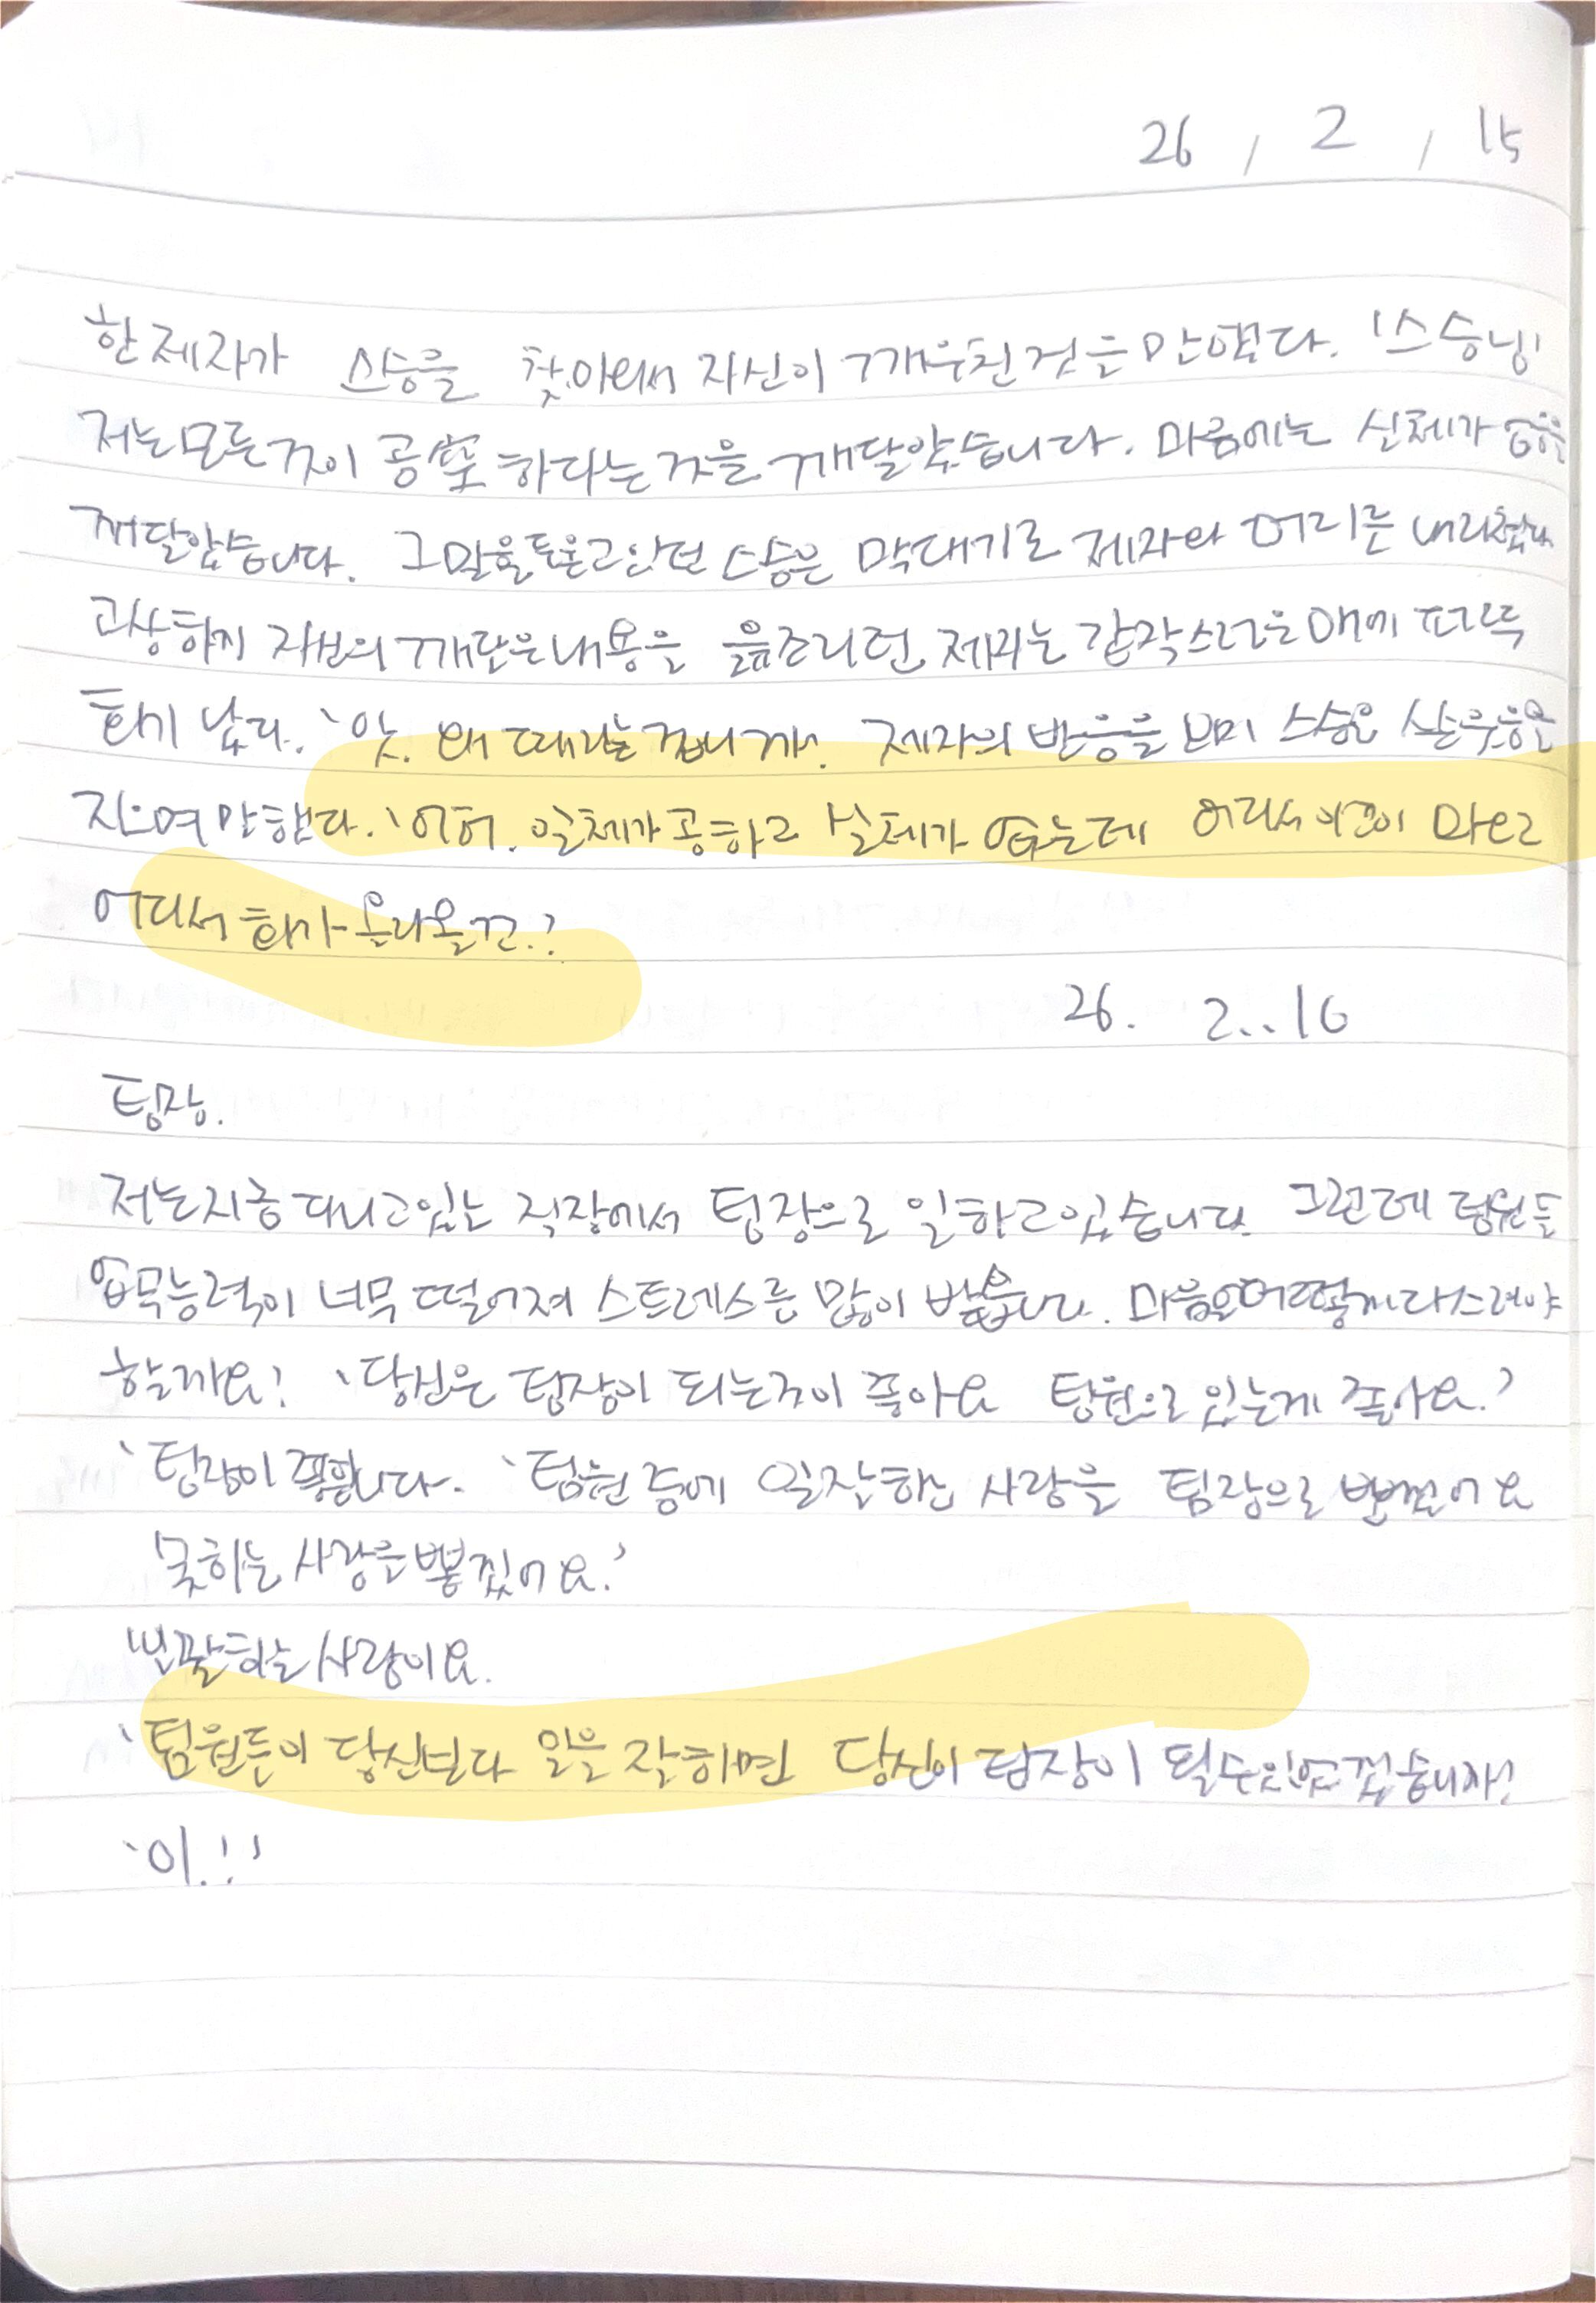 26 / 2 / 15
한 제자가 스승을 찾아와서 자신이 깨우친 것을 말했다. '스승님'
저는 모든것이 공空하다는 것을 깨달았습니다. 마음에는 실체가 없음을
깨달았습니다. 그말을 듣고있던 스승은 막대기로 제자의 머리를 내리쳤다
고상하게 자신의 깨달은 내용을 읊조리던 제자는 갑작스러운 매에 때문
화가 났다. '앗. 왜 때리는 겁니까. 제자의 반응을 보며 스승은 쓴웃음을
지으며 말했다. '어허. 일체가 공하고 실체가 없는데 어디서 아픔이 따르고
어디서 화가 올라올꼬.?
26. 2..16
팀장.
저는 지금 다니고있는 직장에서 팀장으로 일하고 있습니다. 그런데 팀원들
업무능력이 너무 떨어져 스트레스를 많이 받습니다. 마음을 어떻게 다스려야
할까요? '당신은 팀장이 되는것이 좋아요 팀원으로 있는게 좋아요.?
'팀장이 좋습니다. '팀원 중에 일잘하는 사람을 팀장으로 뽑겠어요
못하는 사람을 뽑겠어요.?
잘하는 사람이요.
'팀원들이 당신보다 일을 잘하면 당신이 팀장이 될수있었겠습니까?
'아.!'